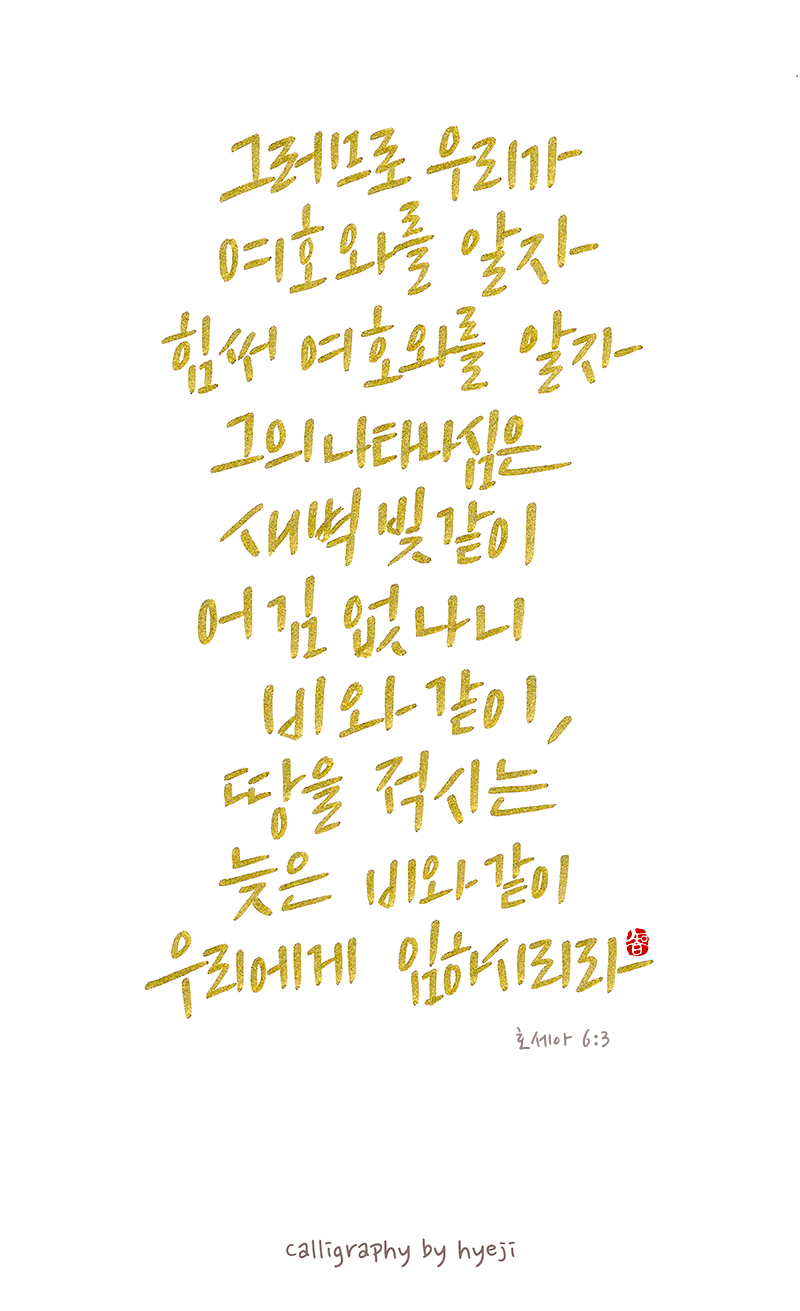 그러므로 우리가
여호와를 알자
힘써 여호와를 알자
그의 나타나심은
새벽 빛 같이
어김 없나니
비와 같이,
땅을 적시는
늦은 비와 같이
우리에게 임하시리라
智
호세아 6:3
calligraphy by hyeji